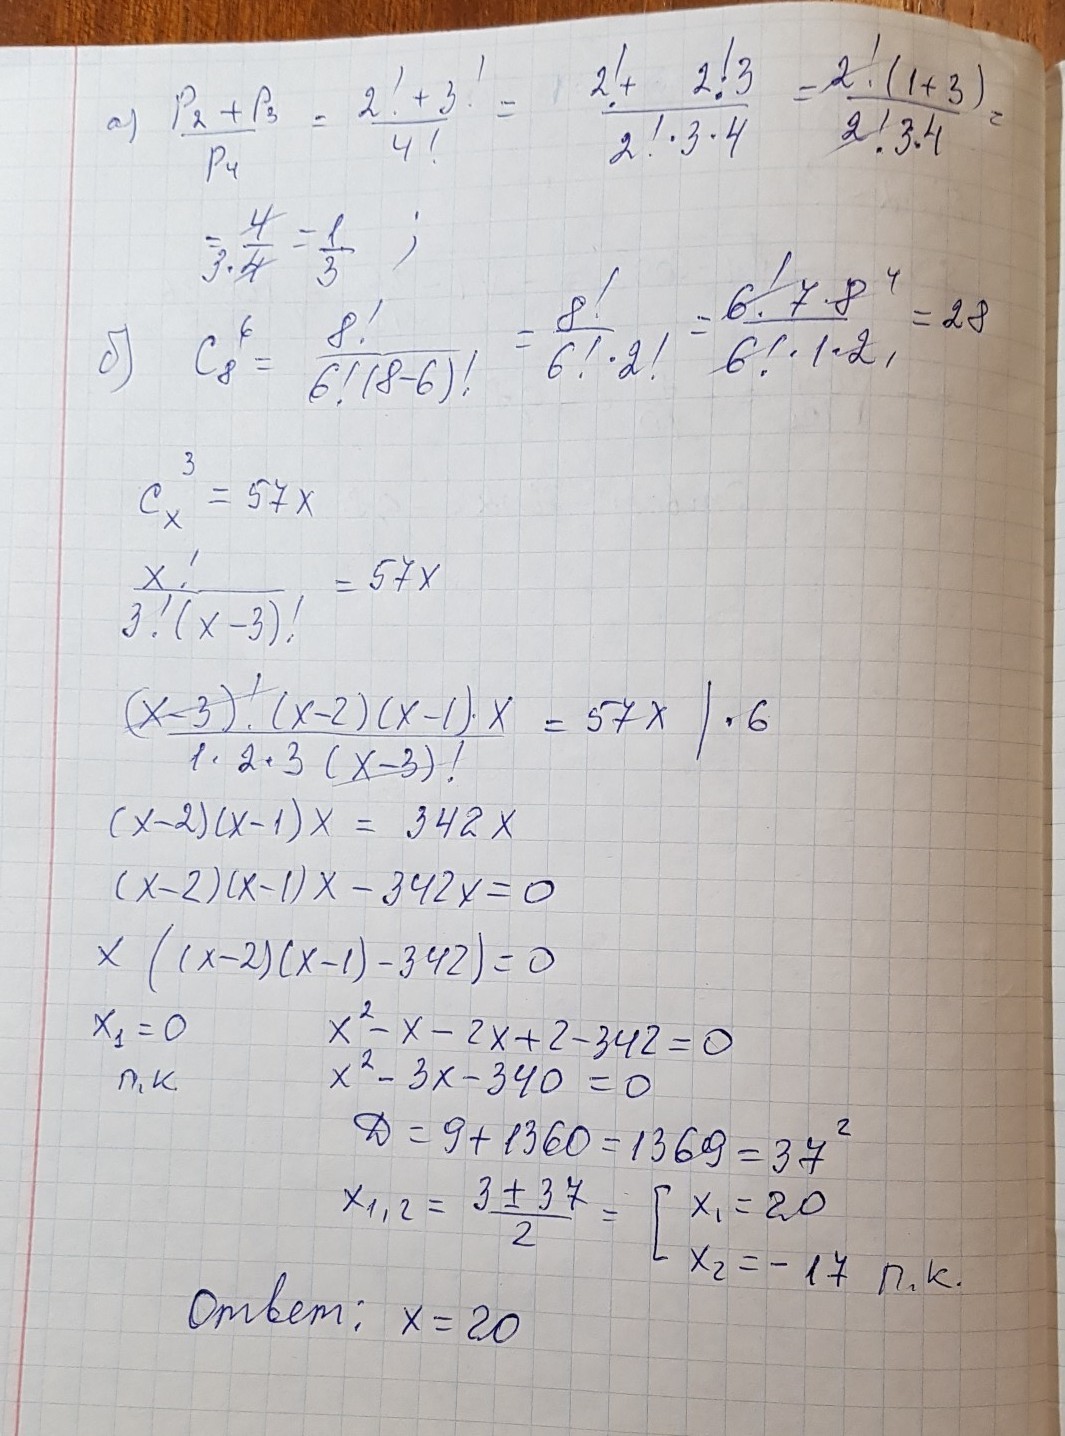 а) (P₂ + P₃)/P₄ = (2! + 3!)/4! = (2! + 2!3)/(2!·3·4) = (2!(1+3))/(2!3·4) =
= 4/(3·4) = 1/3 ;
б) C₈⁶ = 8!/(6!(8-6)!) = 8!/(6!·2!) = (6!·7·8 4)/(6!·1·2 1) = 28
Cₓ³ = 57x
x!/(3!(x-3)!) = 57x
((x-3)!(x-2)(x-1)·x)/(1·2·3(x-3)!) = 57x |·6
(x-2)(x-1)x = 342x
(x-2)(x-1)x - 342x = 0
x((x-2)(x-1) - 342) = 0
x₁ = 0 x² - x - 2x + 2 - 342 = 0
п.к. x² - 3x - 340 = 0
D = 9 + 1360 = 1369 = 37²
x₁,₂ = (3 ± 37)/2 = [ x₁ = 20
x₂ = -17 п.к.
Ответ: x = 20